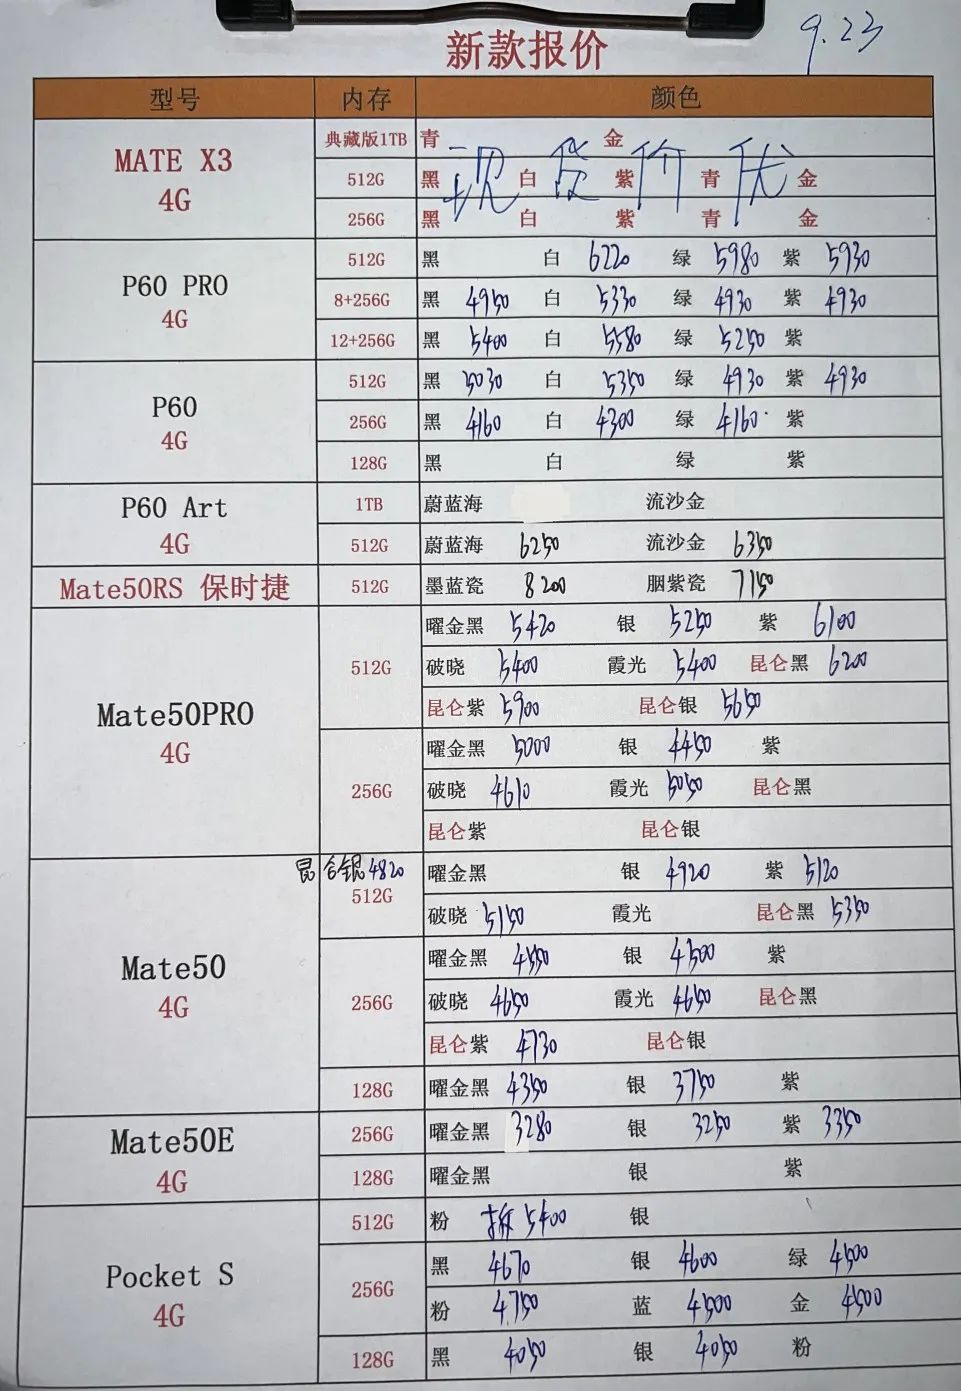 新款报价 9.23
型号 内存 颜色
MATE X3 4G 典藏版1TB 青 金
现货价优
512G 黑 白 紫 青 金
256G 黑 白 紫 青 金
P60 PRO 4G 512G 黑 白 6220 绿 5980 紫 5930
8+256G 黑 4950 白 5330 绿 4930 紫 4930
12+256G 黑 5400 白 5580 绿 5250 紫
P60 4G 512G 黑 5030 白 5350 绿 4930 紫 4930
256G 黑 4160 白 4300 绿 4160 紫
128G 黑 白 绿 紫
P60 Art 4G 1TB 蔚蓝海 流沙金
512G 蔚蓝海 6250 流沙金 6350
Mate50RS 保时捷 512G 墨蓝瓷 8200 胭紫瓷 7150
Mate50PRO 4G 512G 曜金黑 5420 银 5250 紫 6100
破晓 5400 霞光 5400 昆仑黑 6200
昆仑紫 5900 昆仑银 5650
256G 曜金黑 5000 银 4450 紫
破晓 4610 霞光 5050 昆仑黑
昆仑紫 昆仑银
昆仑银4820
Mate50 4G 512G 曜金黑 银 4920 紫 5120
破晓 5150 霞光 昆仑黑 5350
256G 曜金黑 4550 银 4500 紫
破晓 4650 霞光 4650 昆仑黑
昆仑紫 4730 昆仑银
128G 曜金黑 4350 银 3750 紫
Mate50E 4G 256G 曜金黑 3280 银 3250 紫 3350
128G 曜金黑 银 紫
Pocket S 4G 512G 粉 拆5400 银
256G 黑 4670 银 4600 绿 4500
粉 4750 蓝 4500 金 4500
128G 黑 4050 银 4050 粉